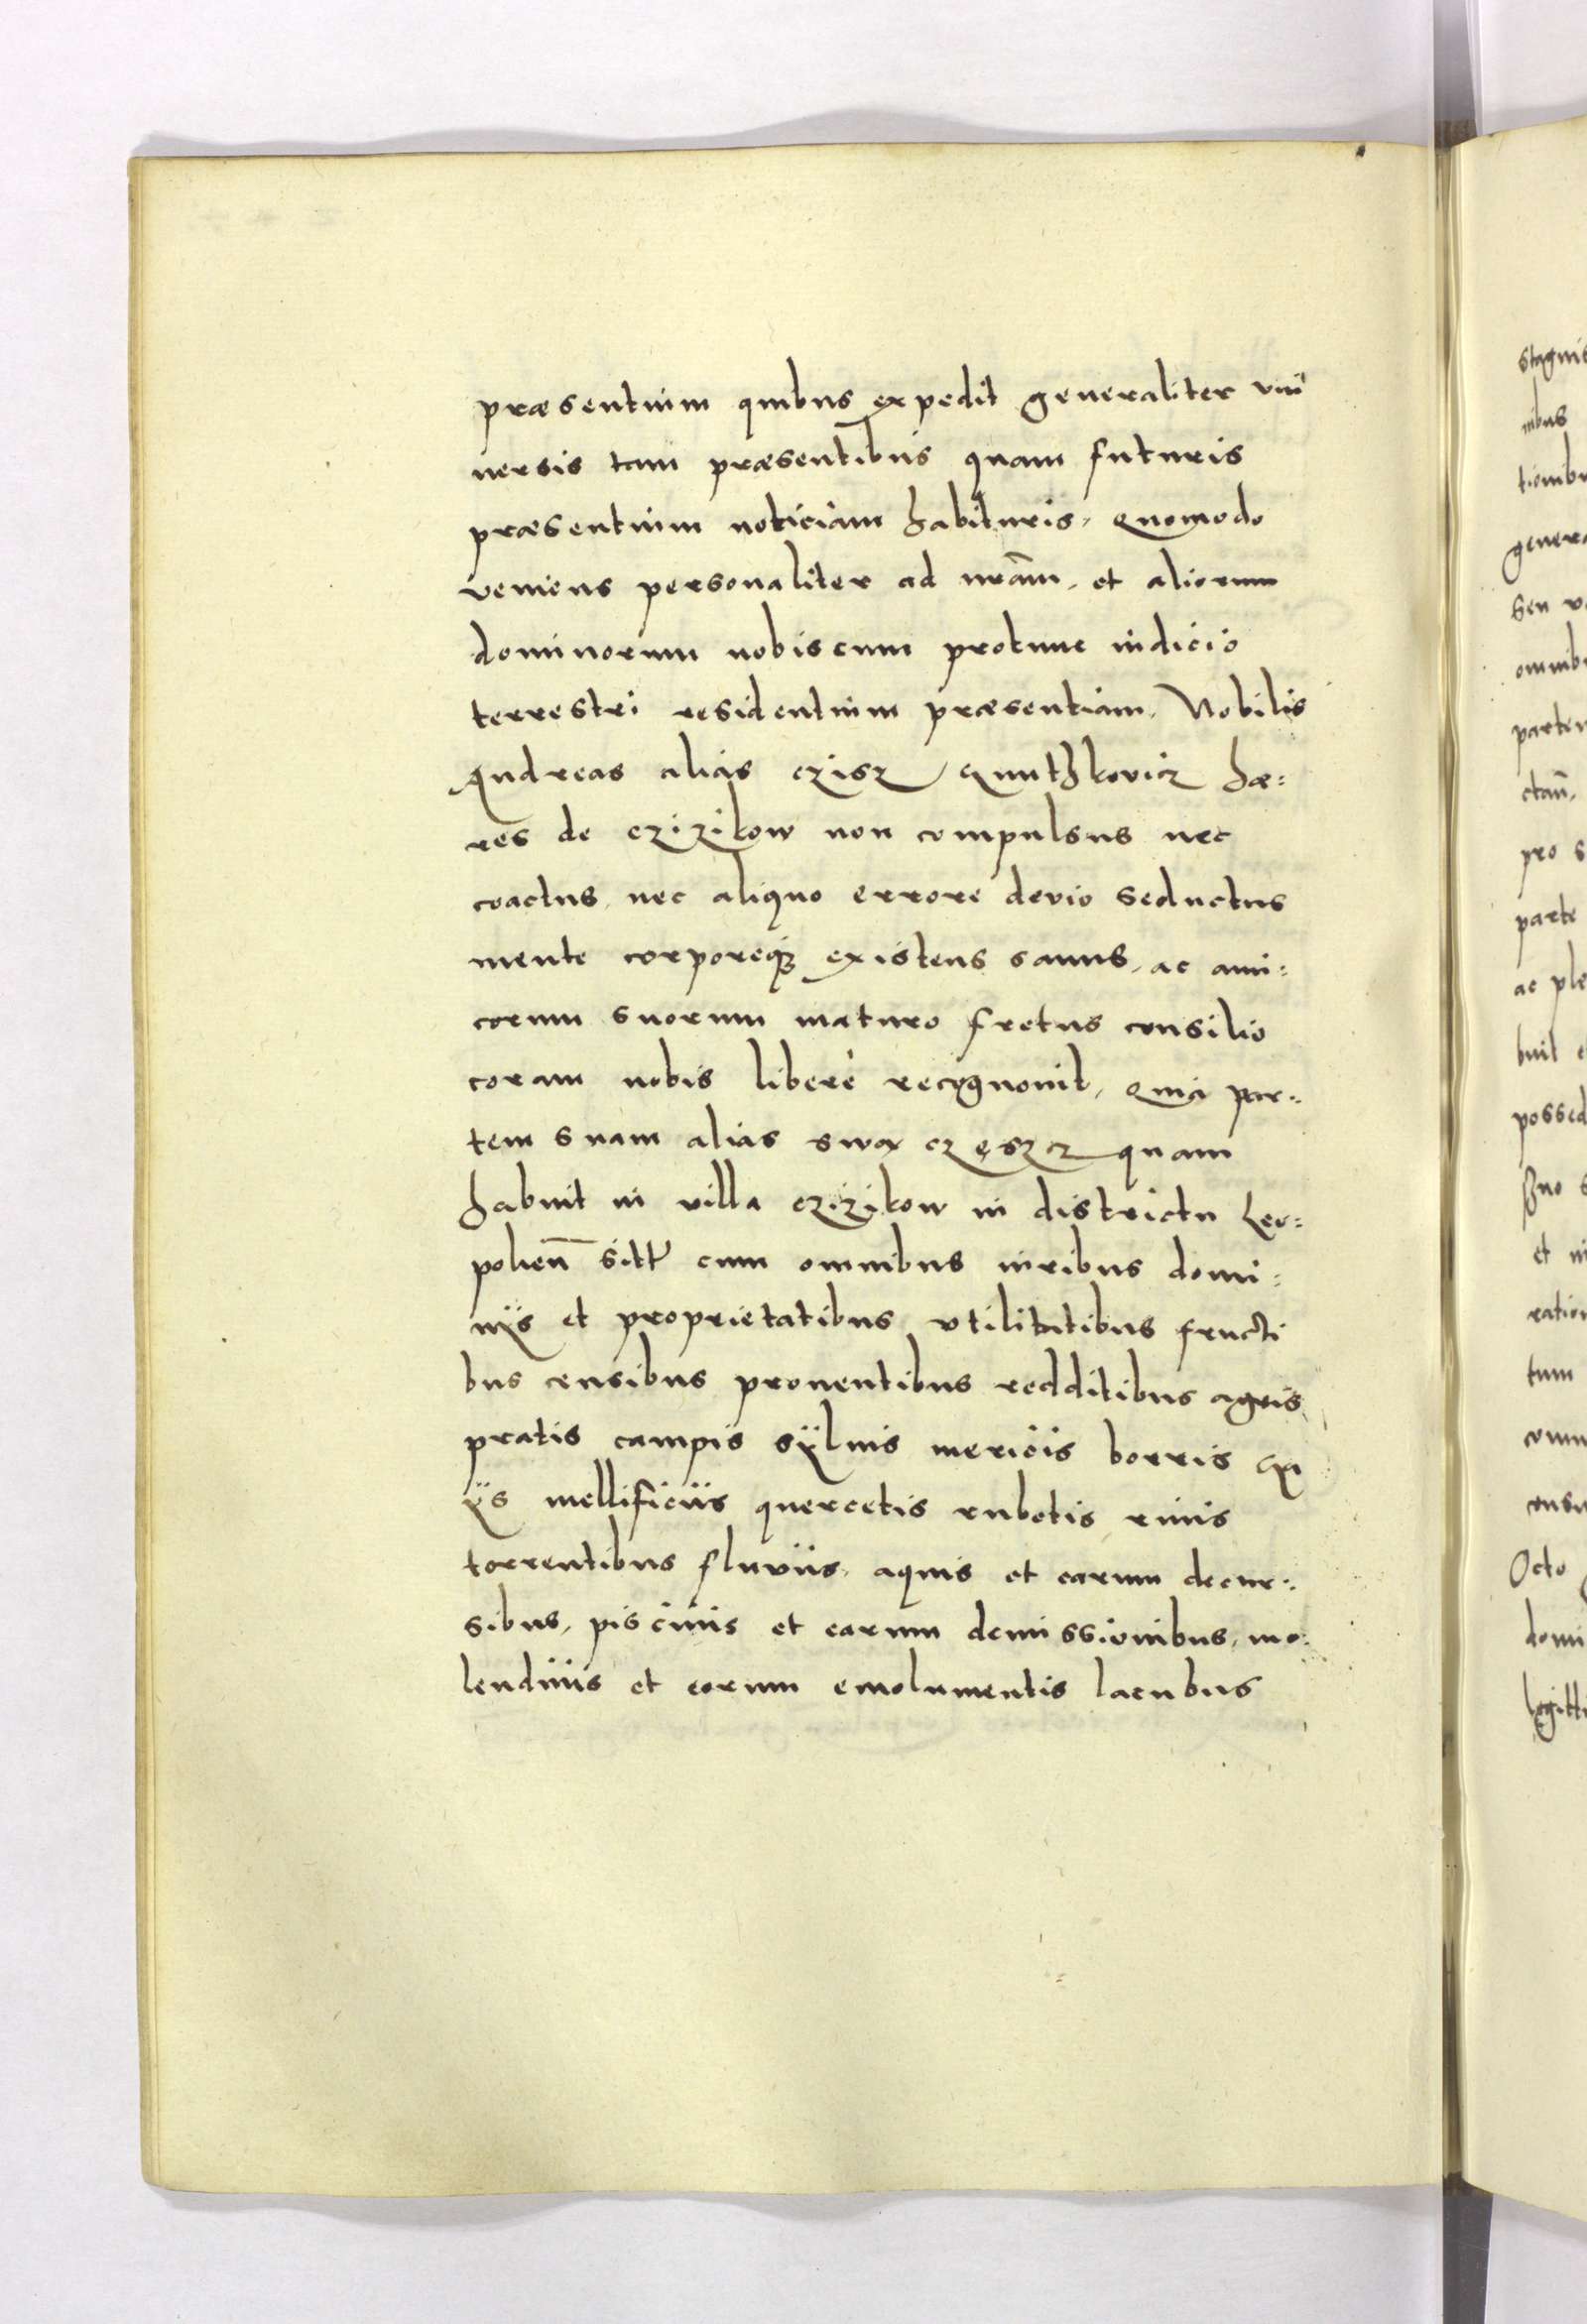 præsentium quibus expedit generaliter uni
uersis tam præsentibus quam futuris
præsentium noticiam habituris, quomodo
veniens personaliter ad nrãm, et aliorum
dominorum nobiscum protunc iudicio
terrestri residentium præsentiam, Nobilis
Andreas alias czisz hæ:
res de czizikow non compulsus nec
coactus, nec aliquo errore devio seductus
mente corporeq; existens sanus, ac ami:
corum suorum maturo fretus consilio
coram nobis liberè recognouit, quia par:
tem suam alias swa quam
habuit in villa czizikow in districtu Leo:
polien̄ sitt cum omnibus iuribus domi:
nijs et proprietatibus utilitatibus fructi
bus censibus prouentibus redditibus agris
pratis campis sÿluis mericis borris
ÿs mellificiis quercetis rubetis riuis
torrentibus fluviis, aquis et earum decur:
sibus, piscinis et earum demissionibus, mo:
lendinis et eorum emolumentis lacubus
stagnis
nibus
omnib
parte
pro s
parte
ac ple
buit
possed
et
tum
Octo
domi